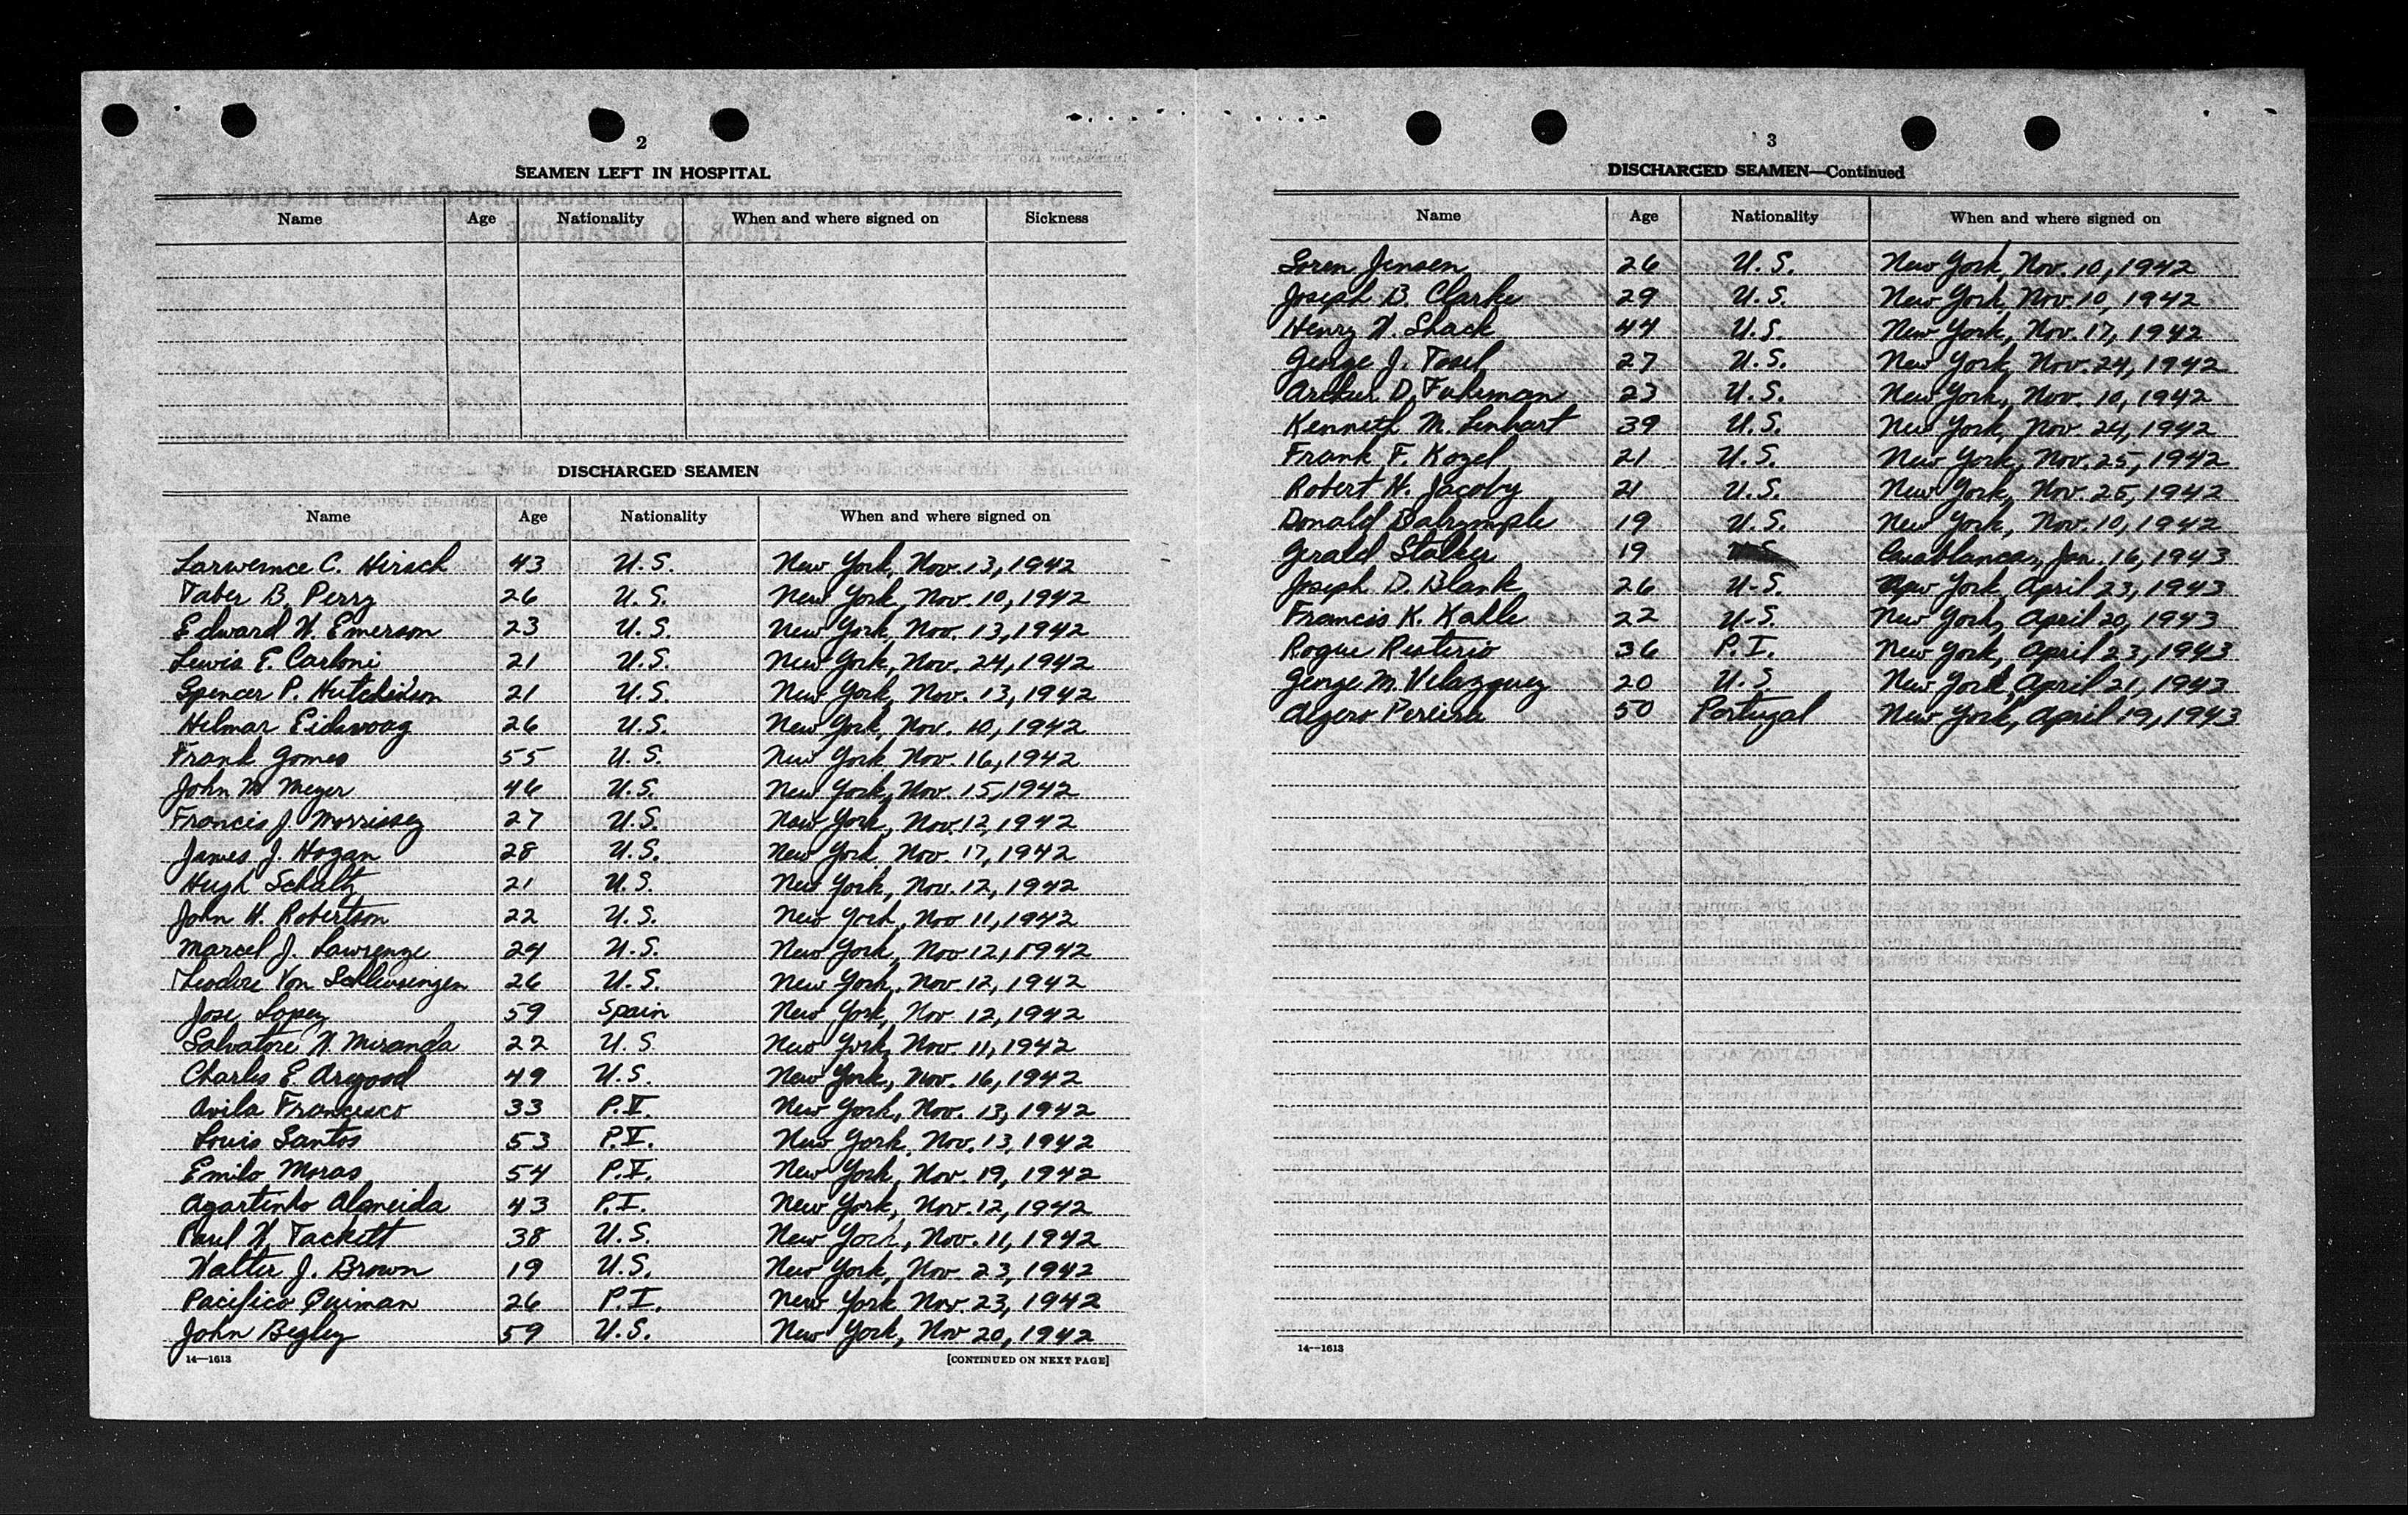 2
SEAMEN LEFT IN HOSPITAL
Name Age Nationality When and where signed on Sickness
DISCHARGED SEAMEN
Name Age Nationality When and where signed on
Larwernce C. Hirsch 43 U.S. New York, Nov. 13, 1942
Taber B. Perry 26 U.S. New York, Nov. 10, 1942
Edward W. Emerson 23 U.S. New York, Nov. 13, 1942
Lewis E. Carloni 21 U.S. New York, Nov. 24, 1942
Spencer P. Hutchidson 21 U.S. New York, Nov. 13, 1942
Helmar Eidsvoag 26 U.S. New York, Nov. 10, 1942
Frank Gomes 55 U.S. New York Nov. 16, 1942
John M Meyer 46 U.S. New York, Nov. 15, 1942
Francis J. Morrissey 27 U.S. New York, Nov. 12, 1942
James J. Hogan 28 U.S. New York, Nov. 17, 1942
Hugh Schultz 21 U.S. New York, Nov. 12, 1942
John W. Robertson 22 U.S. New York, Nov 11, 1942
Marcel J. Lawrenze 24 U.S. New York, Nov 12, 1942
Theodore Von Schleusingen 26 U.S. New York, Nov. 12, 1942
Jose Lopez 59 Spain New York, Nov. 12, 1942
Salvatore W. Miranda 22 U.S New York, Nov. 11, 1942
Charles E. Argood 49 U.S. New York, Nov. 16, 1942
Avila Francesco 33 P.I. New York, Nov. 13, 1942
Louis Santos 53 P.I. New York, Nov. 13, 1942
Emilo Moras 54 P.I. New York, Nov. 19, 1942
Agartinho Almeida 43 P.I. New York, Nov. 12, 1942
Paul W. Tackett 38 U.S. New York, Nov. 11, 1942
Walter J. Brown 19 U.S. New York, Nov. 23, 1942
Pacifico Quiman 26 P.I. New York Nov. 23, 1942
John Begley 59 U.S. New York, Nov 20, 1942
14—1613 [CONTINUED ON NEXT PAGE]
3
DISCHARGED SEAMEN—Continued
Name Age Nationality When and where signed on
Soren Jensen 26 U.S. New York, Nov. 10, 1942
Joseph B. Clarke 29 U.S. New York, Nov. 10, 1942
Henry W. Shack 44 U.S. New York, Nov. 17, 1942
George J. Tosel 27 U.S. New York, Nov. 24, 1942
Arthur D. Fuhrman 23 U.S. New York, Nov. 10, 1942
Kenneth M. Lenhart 39 U.S. New York, Nov. 24, 1942
Frank F. Kozel 21 U.S. New York, Nov. 25, 1942
Robert H. Jacoby 21 U.S. New York, Nov. 25, 1942
Donald Dalrymple 19 U.S. New York, Nov. 10, 1942
Gerald Stalker 19 Casablanca, Jan. 16, 1943
Joseph D. Blank 26 U.S. New York, April 23, 1943
Francis K. Kahle 22 U.S. New York, April 20, 1943
Roque Restirio 36 P.I. New York, April 23, 1943
George M. Velazquez 20 U.S. New York, April 21, 1943
Pereira 50 Portugal New York, April 19, 1943
14—1613